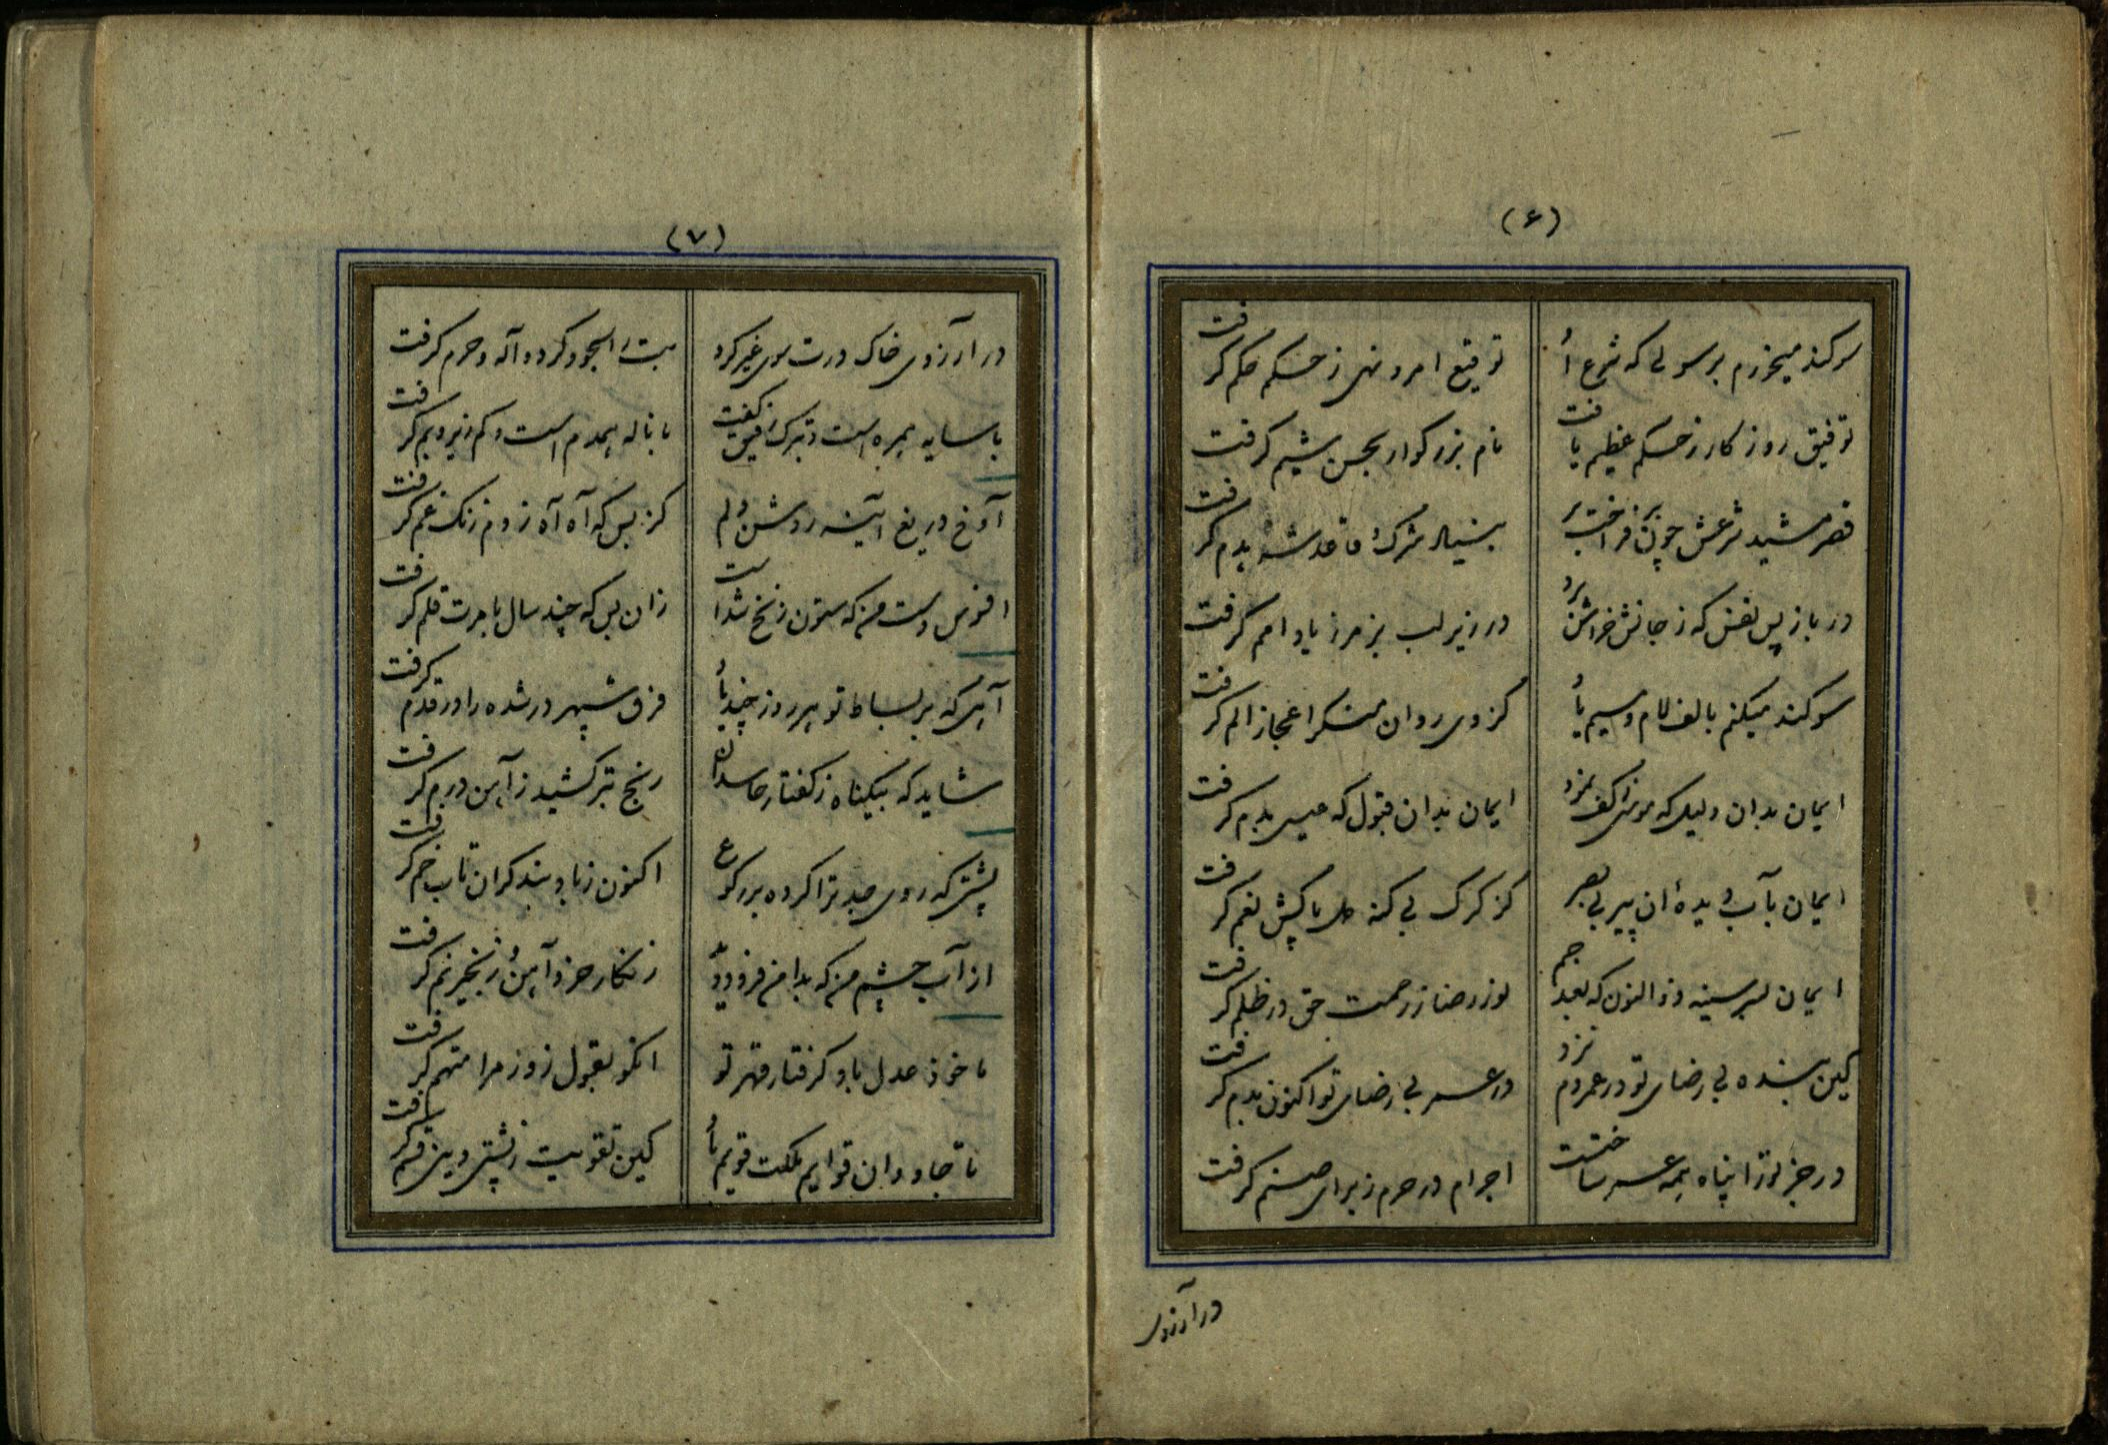 (۶)
سوکند میخورم برسولی که شرع اُ
توقیع امر و نهی ز حکم حکم کرفت
توفیق روزکار ز حکم عظیم یافت
نام بزرکوار بحسن شیم کرفت
قصر مشید شرعش چون بر فراخت سر
بنیاد شرک قاعدشه بدم کرفت
در باز پس نفس که ز جانش خراش برد
در زیر لب بزمزمه یاد امم کرفت
سوکند میکنم بالف لام و میم یا
کز وی روان منکر اعجاز الم کرفت
ایمان بدان دلیل که موسی کف نمود
ایمان بدان قبول که عیسی بدم کرفت
ایمان بآب دیده ان پیر بی بصر
کز کرک بی کنه دل پاکش نغم کرفت
ایمان بسر سینه ذوالنون که بعد
نور رضا ز رحمت حق در ظلم کرفت
کین بنده بی رضای تو در عمر دم نزد
در عمر بی رضای تو اکنون بدم کرفت
در جز تو ترا پناه همه عمر ساختست
اجرام در حرم ز برای صنم کرفت
در آرزوی
(۷)
در آرزوی خاک درت سوی غیر کرد
بت را سجود کرده و آنه و حرم کرفت
با سایه همره است و ترک رفیق کفت
با ناله همدم است و کم زیر و بم کرفت
آوخ دریغ آینه روشن دلم
کز بس که آه آه زدم زنک غم کرفت
افسوس دست من که ستون زنخ شدست
زان پس که چند سال بامرت قلم کرفت
آنی که بر بساط تو هر روز چند با
فرق سپهر در شده را در قدم کرفت
شاید که بیکناه ز کفتار حاسدان
رنج تبر کشید ز آهن درم کرفت
پشتی که روی صدر ترا کرده بد رکوع
اکنون ز باد بند کران تاب خم کرفت
از آب چشم من که بدامن فرو دود
زنکار خورد آهن و زنجیر نم کرفت
ماخوذ عدل باد و کرفتار قهر تو
انکو بقول زور مرا متهم کرفت
تا جاودان قوایم ملکت قویم با
کین تقویت ز پشتی دین قیم کرفت